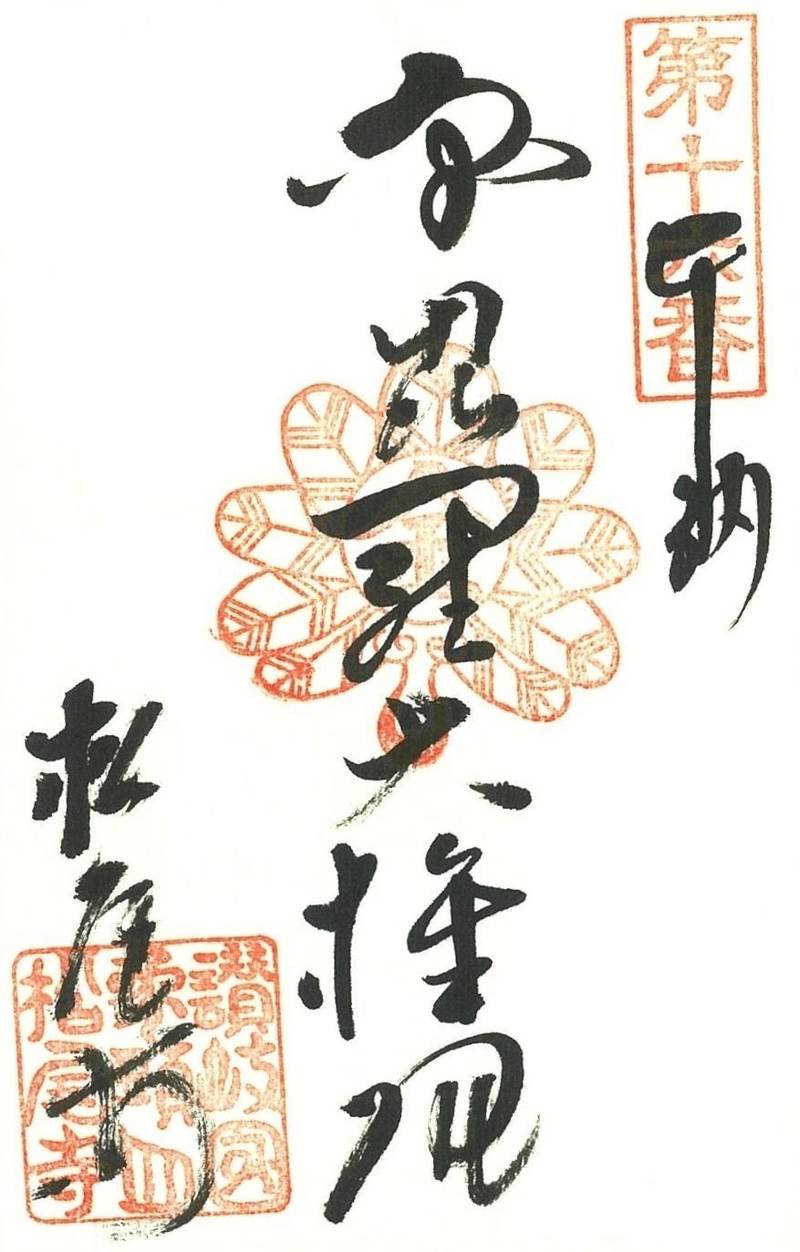 第十六番
奉納
宮毘羅大権現
松尾寺
讃岐國
象頭山
松尾寺